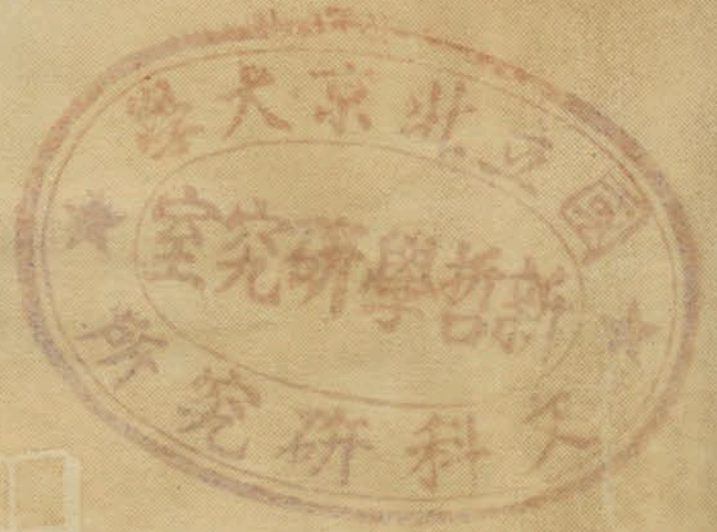 國立北京大學
新哲學研究室
文科研究所